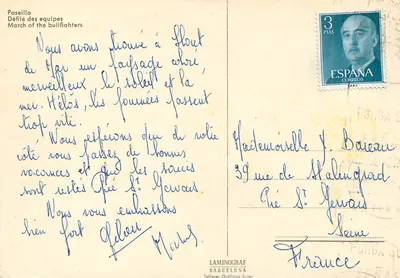 Paseillo
Défilé des equipes
March of the bullfighters
Nous avons trouvé à Lloret
de Mar un paysage coloré
merveilleux, le soleil et la
mer. Hélas, les journées passent
trop vite.
Nous espérons que de votre
côté vous passez de bonnes
vacances et que les
sont restés Pré St Gervais.
Nous vous embrassons
bien fort
3
PTAS
ESPAÑA
CORREOS
Mademoiselle
39 rue de Stalingrad
Pré St Gervais
Seine
France
LAMINOGRAF
BARCELONA